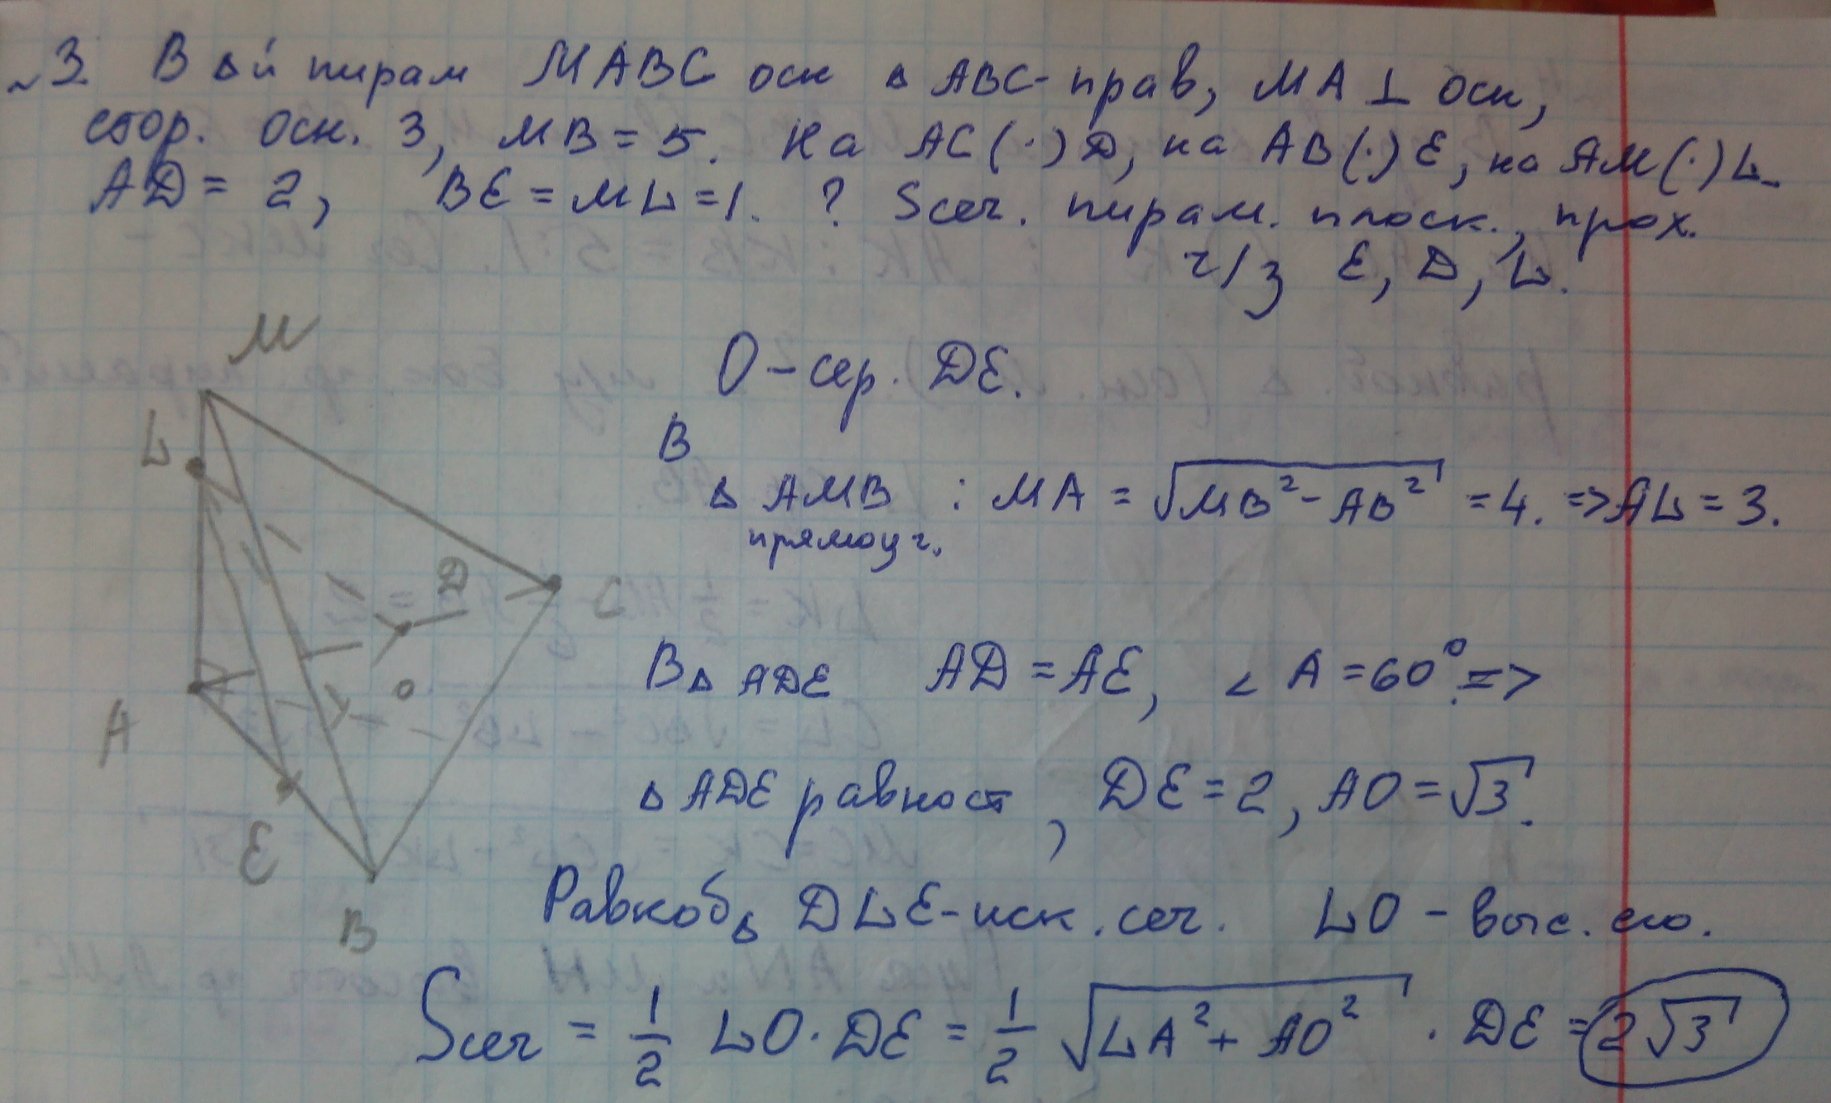 ~3. В △й пирам MABC осн △ ABC-прав, MA ⊥ осн,
стор. осн. 3, MB = 5. На AC (·) D, на AB (·) E, на AM (·) L.
AD = 2, BE = ML = 1. ? Sсеч. пирам. плоск., прох.
ч/з E, D, L.
O - сер. DE.
В
△ AMB : MA = √(MB² - AB²) = 4. => AL = 3.
прямоуг.
В △ ADE AD = AE, ∠ A = 60°. =>
△ ADE равност, DE = 2, AO = √3.
Равноб △ DLE - иск. сеч. LO - выс. его.
Sсеч = 1/2 LO · DE = 1/2 √(LA² + AO²) · DE = 2√3
M
L
D
C
O
A
E
B